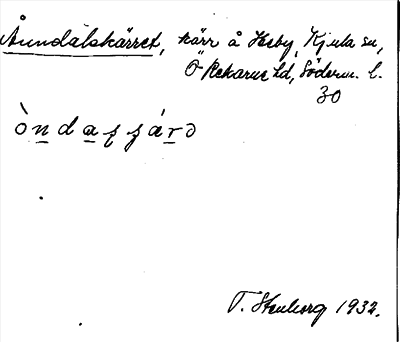 Ånndalskärret, kärr å Heby, Kjula sn,
Ö Rekarne hd, Söderm. l.
30
T. Stenborg 1932.